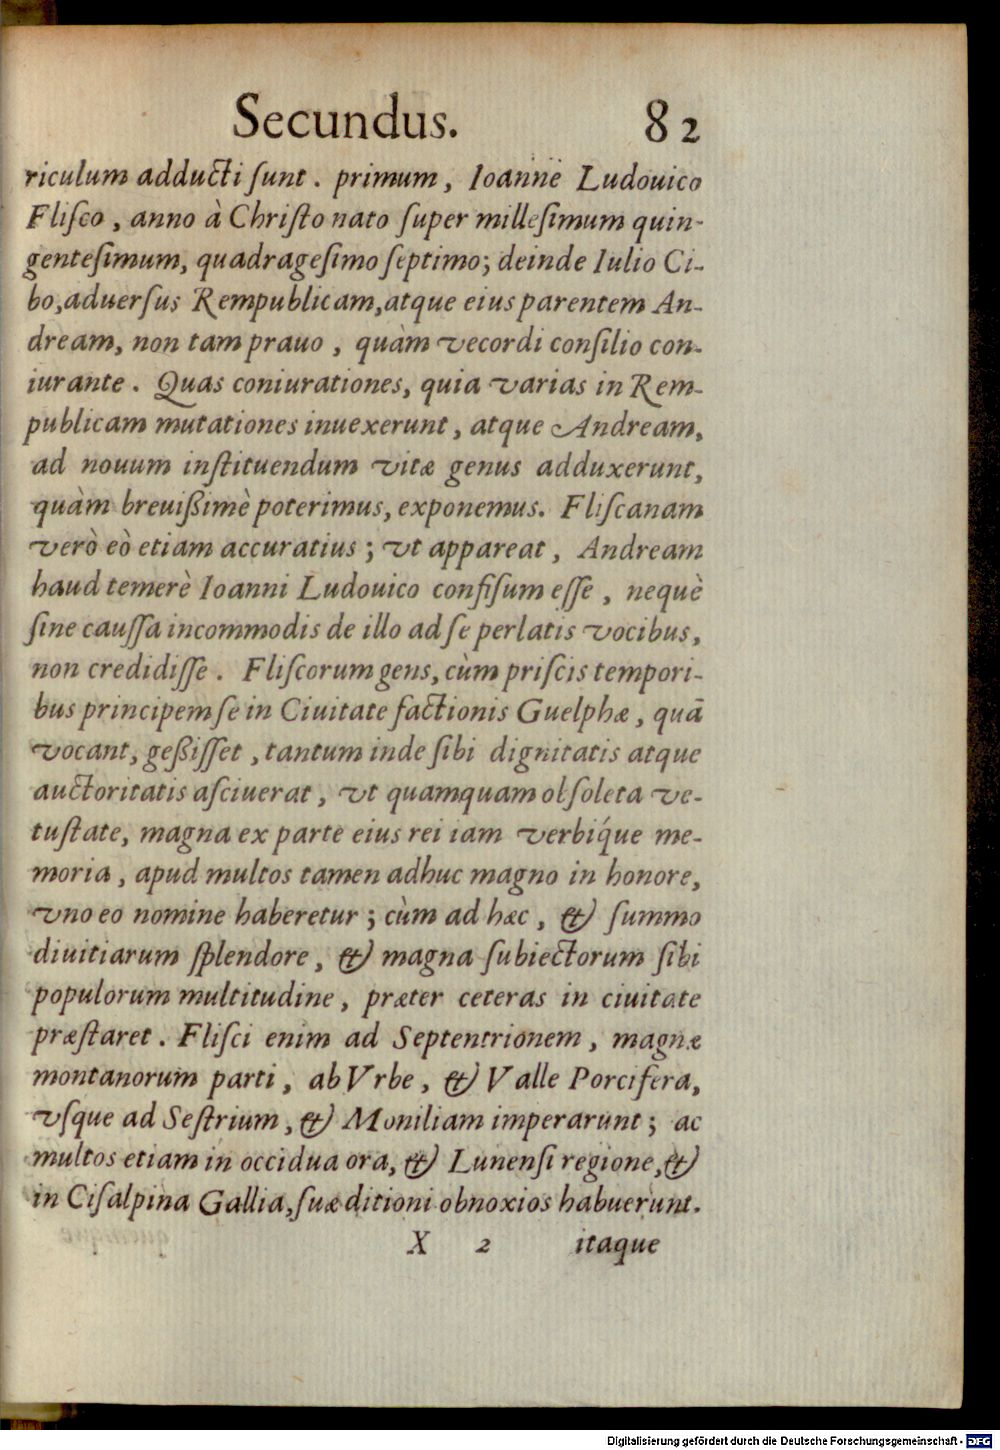 Secundus. 82
riculum adducti ſunt. primum, Ioanne Ludouico
Fliſco, anno à Chriſto nato ſuper milleſimum quin-
genteſimum, quadrageſimo ſeptimo; deinde Iulio Ci-
bo, aduerſus Rempublicam, atque eius parentem An-
dream, non tam prauo, quàm vecordi conſilio con-
iurante. Quas coniurationes, quia varias in Rem-
publicam mutationes inuexerunt, atque Andream,
ad nouum inſtituendum vitæ genus adduxerunt,
quàm breuißimè poterimus, exponemus. Fliſcanam
verò eò etiam accuratius; vt appareat, Andream
haud temerè Ioanni Ludouico confiſum eſſe, nequè
ſine cauſſa incommodis de illo ad ſe perlatis vocibus,
non credidiſſe. Fliſcorum gens, cùm priſcis tempori-
bus principem ſe in Ciuitate factionis Guelphæ, quā
vocant, geßiſſet, tantum inde ſibi dignitatis atque
auctoritatis aſciuerat, vt quamquam obſoleta ve-
tuſtate, magna ex parte eius rei iam verbíque me-
moria, apud multos tamen adhuc magno in honore,
vno eo nomine haberetur; cùm ad hæc, & ſummo
diuitiarum ſplendore, & magna ſubiectorum ſibi
populorum multitudine, præter ceteras in ciuitate
præſtaret. Fliſci enim ad Septentrionem, magnæ
montanorum parti, ab Vrbe, & Valle Porcifera,
vſque ad Seſtrium, & Moniliam imperarunt; ac
multos etiam in occidua ora, & Lunenſi regione, &
in Ciſalpina Gallia, ſuæ ditioni obnoxios habuerunt.
X 2 itaque
Digitalisierung gefördert durch die Deutsche Forschungsgemeinschaft - DFG